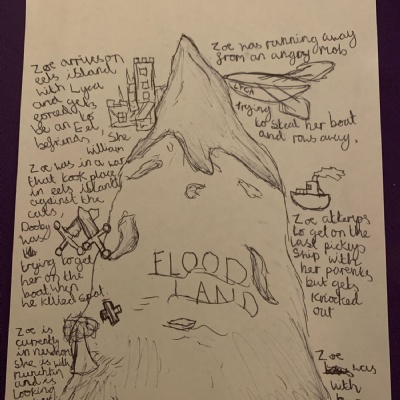 Zoe arrives on
eels island
with Lyca
and gets
to
be an Eel, She
befriends
William
Zoe was in a war
that took place
in eels island
against the
cats,
Dooby
was
trying to get
her on the
boat when
he killed spot.
Zoe is
currently
in
she is with
and is
looking
Zoe was running away
from an angry mob
LYCA
trying
to steal her boat
and rows away.
Zoe attemps
to get on the
last pickup
ship with
her parents
but gets
knocked
out
Zoe
was
with
FLOOD
LAND